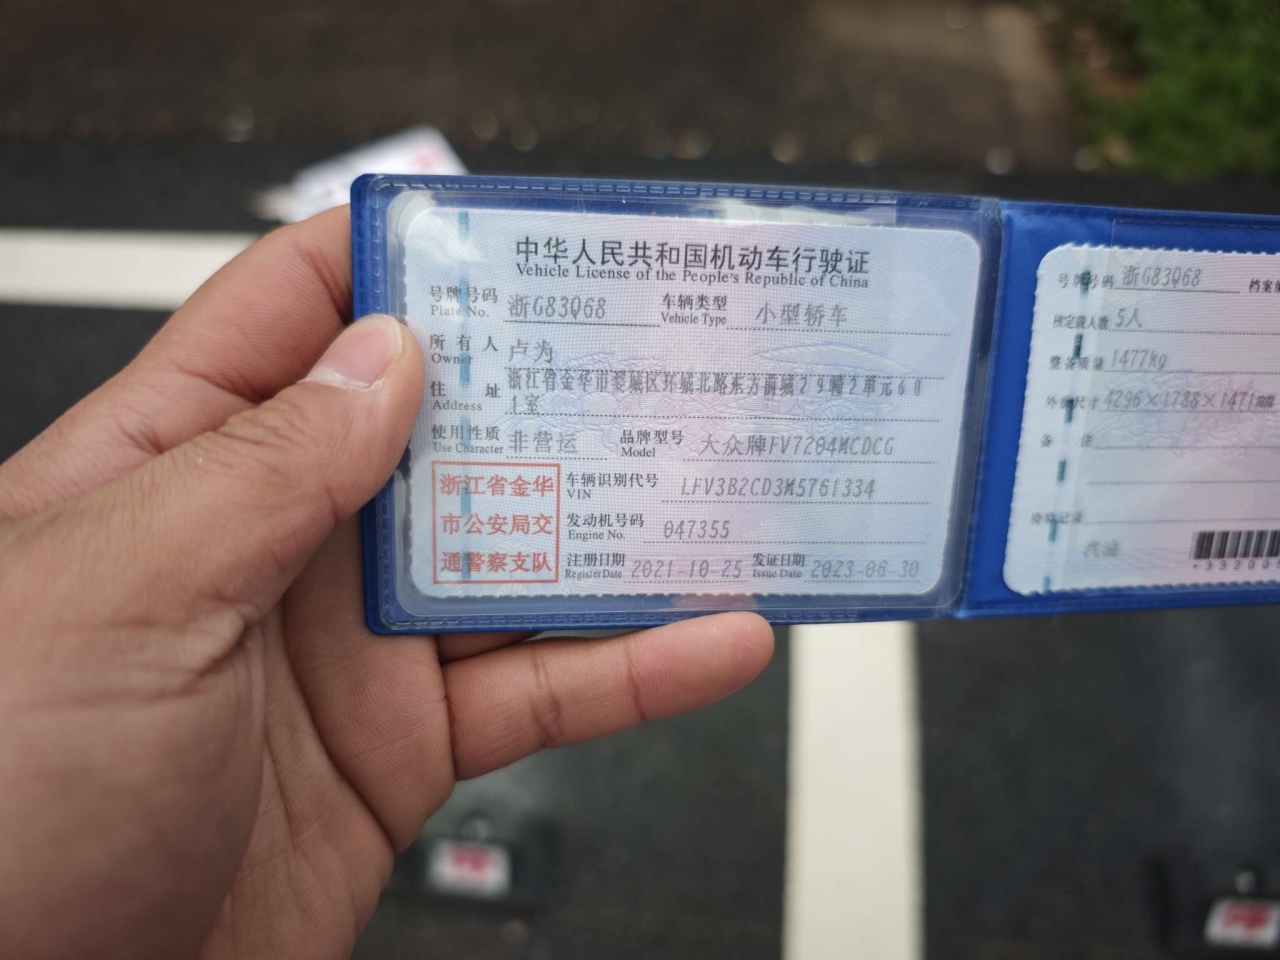 中华人民共和国机动车行驶证
Vehicle License of the People's Republic of China
号牌号码 浙G83Q68 车辆类型 小型轿车
Plate No. Vehicle Type
所有人 卢为
Owner
住址 浙江省金华市婺城区环城北路东方前城29幢2单元60
Address 1室
使用性质 非营运 品牌型号 大众牌FV7204MCDCG
Use Character Model
浙江省金华
市公安局交
通警察支队
车辆识别代号 LFV3B2CD3M5761334
VIN
发动机号码 047355
Engine No.
注册日期 2021-10-25 发证日期 2023-06-30
Register Date Issue Date
号牌号码 浙G83Q68 档案编
核定载人数 5人
整备质量 1477kg
外廓尺寸 4296×1788×1471mm
备注
检验记录
汽油